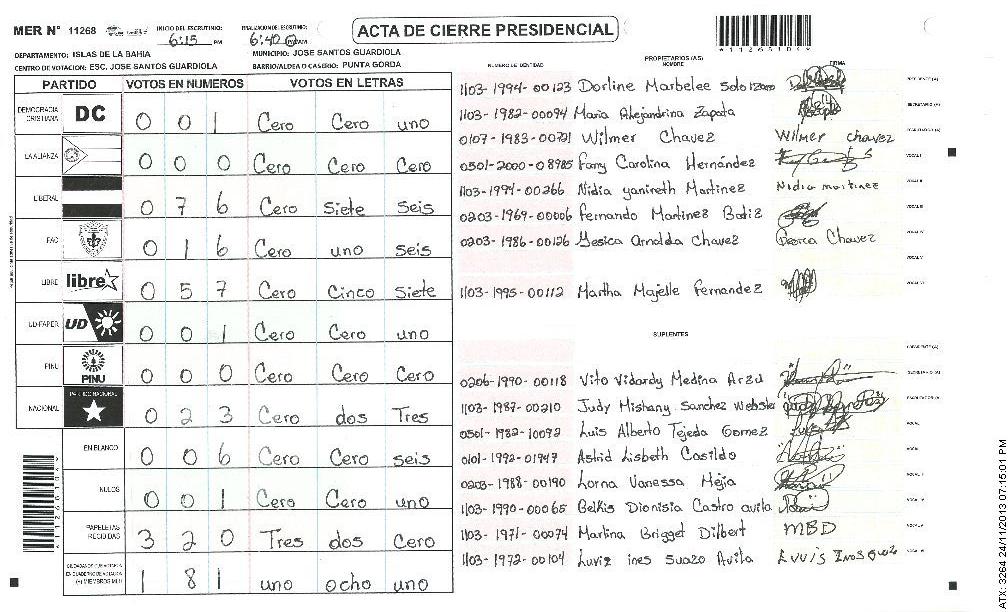 MER N° 11268
INICIO DEL ESCRUTINIO: 6:15 PM
FINALIZACION DEL ESCRUTINIO: 6:40 PM
ACTA DE CIERRE PRESIDENCIAL
*11268104*
DEPARTAMENTO: ISLAS DE LA BAHIA
MUNICIPIO: JOSE SANTOS GUARDIOLA
CENTRO DE VOTACION: ESC. JOSE SANTOS GUARDIOLA
BARRIO/ALDEA O CASERIO: PUNTA GORDA
PARTIDO VOTOS EN NUMEROS VOTOS EN LETRAS
DEMOCRACIA CRISTIANA DC 0 0 1 Cero Cero uno
LA ALIANZA 0 0 0 Cero Cero Cero
LIBERAL 0 7 6 Cero Siete seis
FAC 0 1 6 Cero uno seis
LIBRE libre 0 5 7 Cero Cinco Siete
UD-FAPER UD 0 0 1 Cero Cero uno
PINU PINU 0 0 0 Cero Cero Cero
NACIONAL PARTIDO NACIONAL 0 2 3 Cero dos Tres
EN BLANCO 0 0 6 Cero Cero seis
NULOS 0 0 1 Cero Cero uno
PAPELETAS RECIBIDAS 3 2 0 Tres dos Cero
(+) MIEMBROS MER 1 8 1 uno ocho uno
NUMERO DE IDENTIDAD
PROPIETARIOS (AS)
NOMBRE
FIRMA
1103-1994-00123 Dorline Marbelee Solo
1103-1982-00094 Maria Alejandrina Zapata
0107-1983-00721 Wilmer Chavez Wilmer chavez
0501-2000-08985 Fany Carolina Hernández
1103-1994-00266 Nidia yanireth Martinez Nidia martinez
0203-1969-00006 Fernando Martinez Batiz
0203-1986-00126 Yesica Arnolda Chavez Chavez
1103-1995-00112 Martha Majelle Fernandez
SUPLENTES
0206-1990-00118 Vito Vidardy Medina Arzu
1103-1987-00210 Judy Mishany Sanchez Webster
0501-1982-10092 Luis Alberto Tejeda Gomez
0101-1992-01947 Astrid Lisbeth Casildo
0203-1988-00190 Lorna Vanessa Mejia
1103-1990-00065 Belkis Dionisia Castro avila
1103-1971-00074 Martina Brigget Dilbert MBD
1103-1972-00104 Luviz ines Suazo Avila
ATX: 3264 24/11/2013 07:15:01 PM